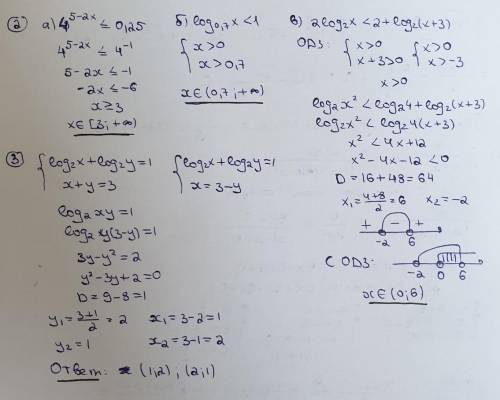 ② а) 4^(5-2x) ≤ 0,25
4^(5-2x) ≤ 4^(-1)
5-2x ≤ -1
-2x ≤ -6
x ≥ 3
x ∈ [3; +∞)
б) log₀,₇x < 1
{ x>0
x>0,7
x ∈ (0,7; +∞)
в) 2log₂x < 2+log₂(x+3)
ОДЗ: { x>0 { x>0
x+3>0 x>-3
x>0
log₂x² < log₂4+log₂(x+3)
log₂x² < log₂4(x+3)
x² < 4x+12
x²-4x-12 < 0
D = 16+48 = 64
x₁ = (4+8)/2 = 6 x₂ = -2
+ - +
-2 6
С ОДЗ:
-2 0 6
x ∈ (0;6)
③ { log₂x+log₂y=1 { log₂x+log₂y=1
x+y=3 x=3-y
log₂xy=1
log₂y(3-y)=1
3y-y²=2
y²-3y+2=0
D=9-8=1
y₁ = (3+1)/2 = 2 x₁=3-2=1
y₂ = 1 x₂=3-1=2
Ответ: (1;2); (2;1)